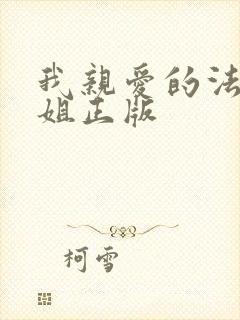 我親愛的法
姐正版
柯雪